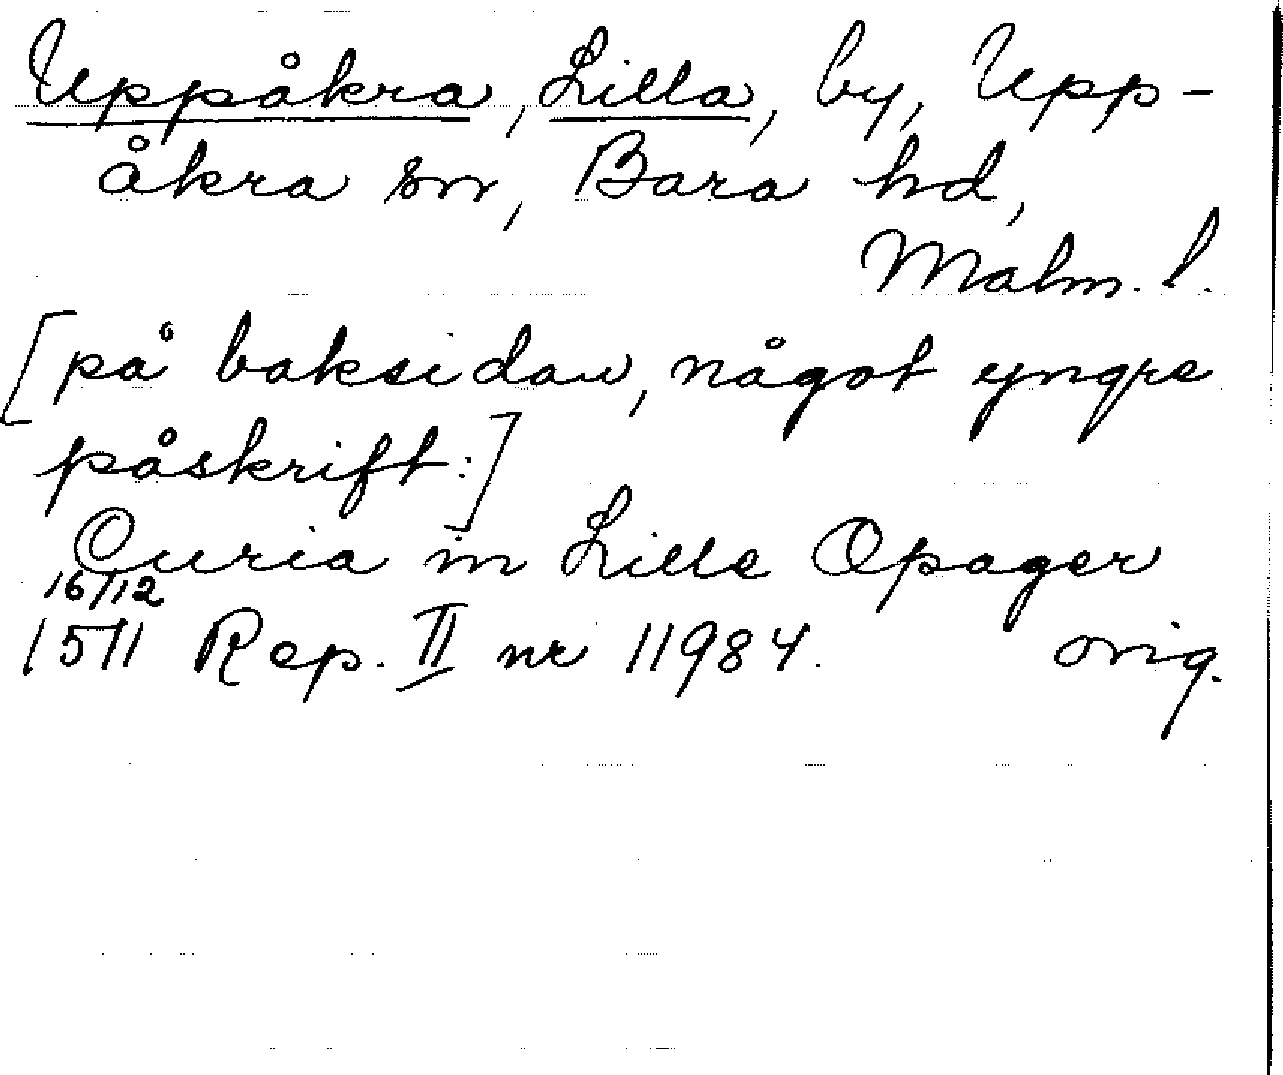 Uppåkra, Lilla, by, Upp-
åkra sn, Bara hd,
Malm. l.
[på baksidan, något yngre
påskrift:]
Curia in Lille Opager
16/12
1511 Rep. II nr 11984. orig.